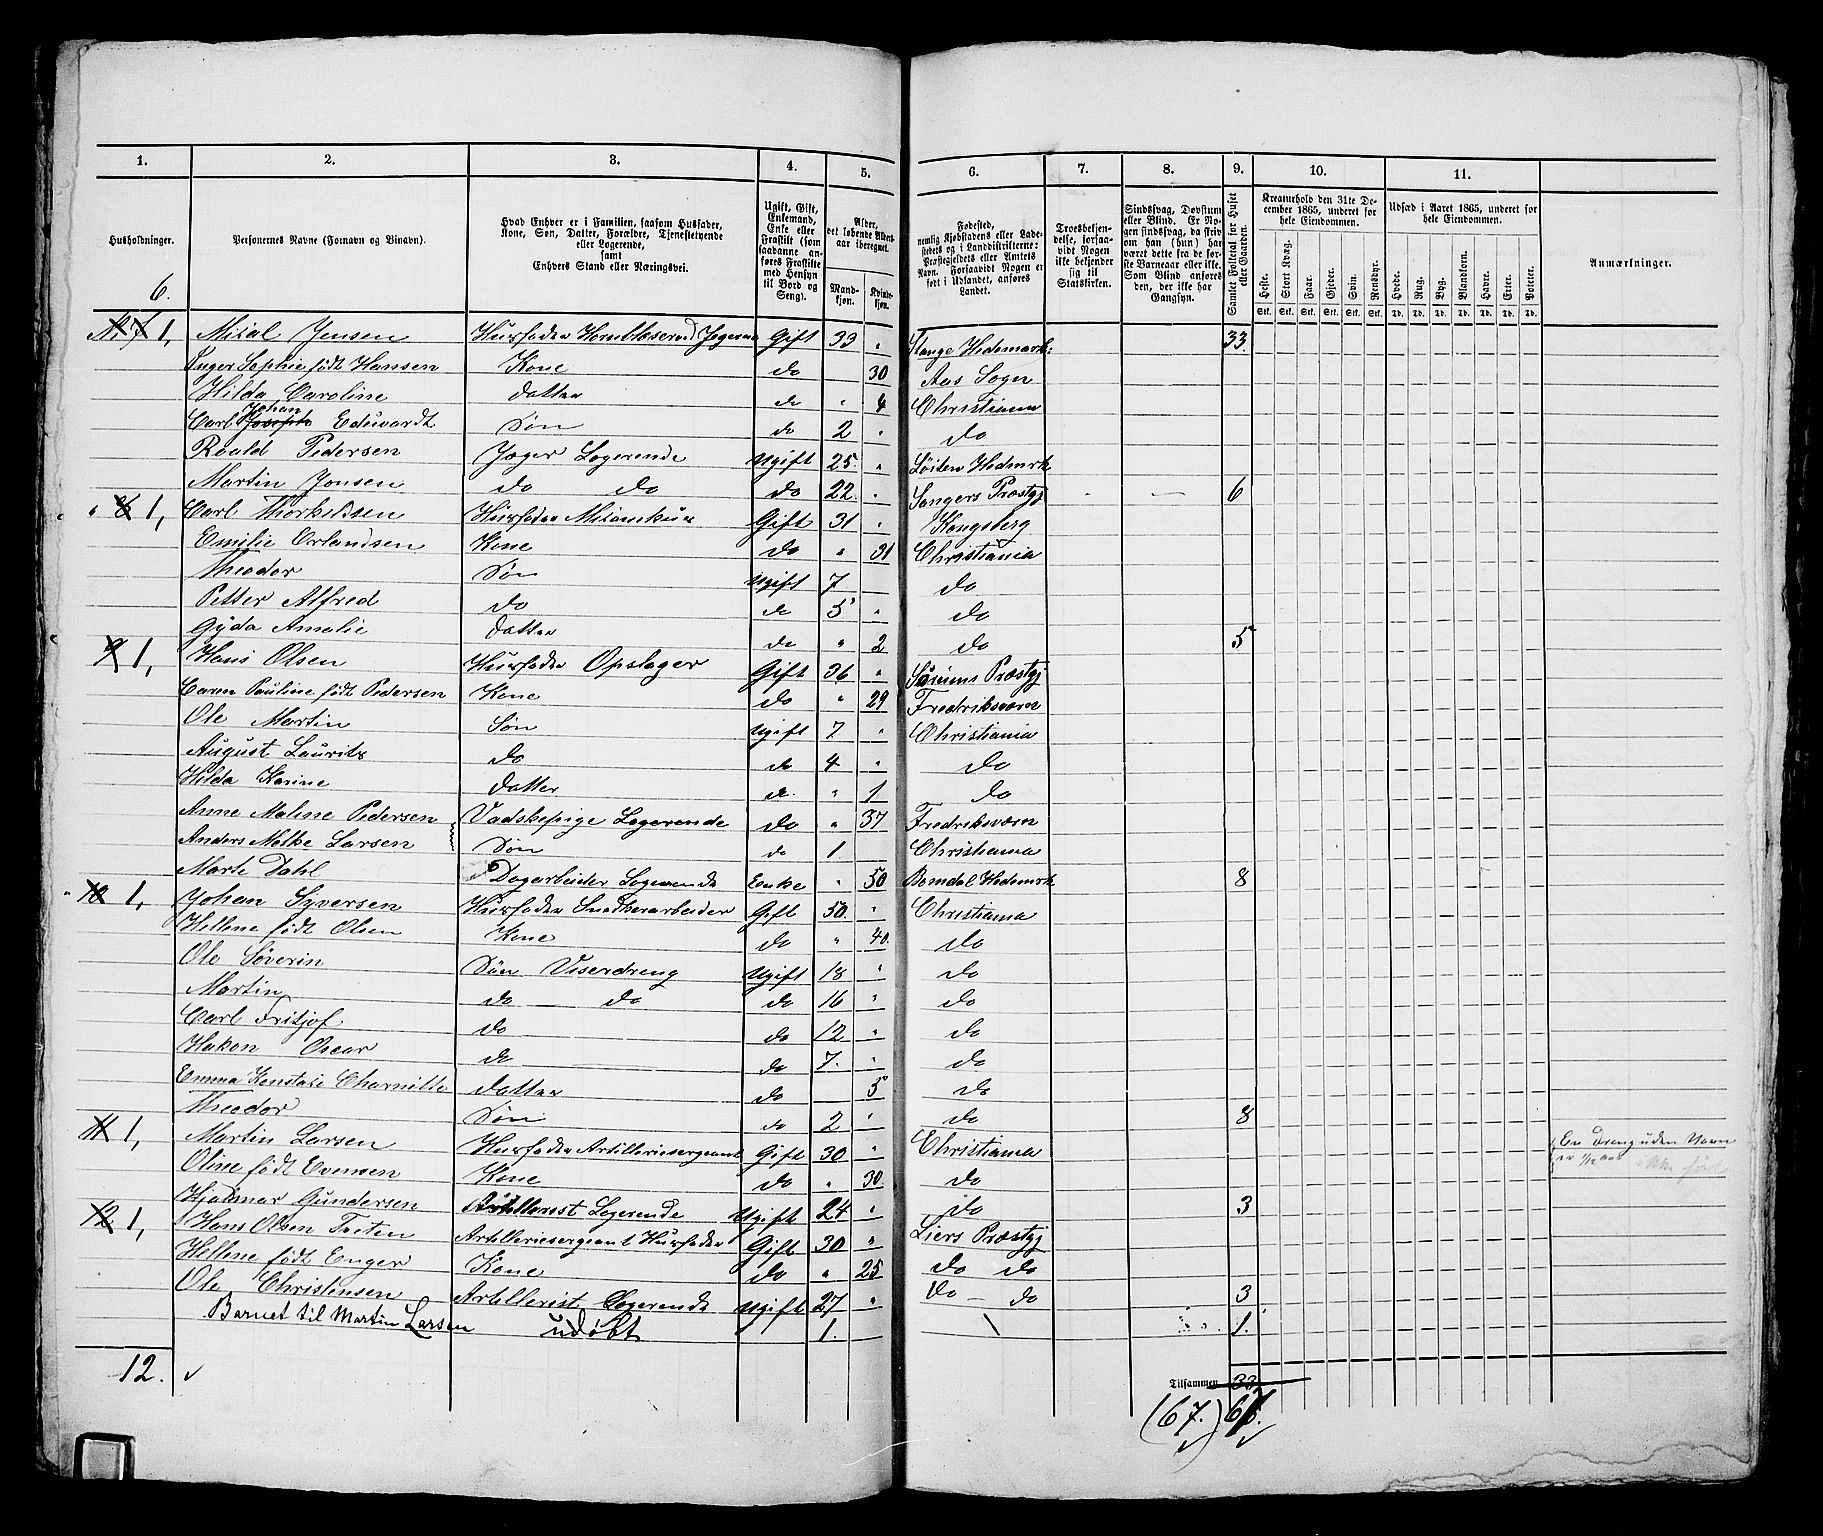 1. 2. 3. 4. 5. 6. 7. 8. 9. 10. 11.
Husholdninger. Personernes Navne (Fornavn og Binavn). Hvad Enhver er i Familien, saasom Husfader, Kone, Søn, Datter, Forældre, Tjenestetyende eller Logerende, samt Enhvers Stand eller Næringsvei. Ugift, Gift, Enkemand, Enke eller Fraskilt (som saadanne anføres Fraskilte med Hensyn til Bord og Seng). Alder, det løbende Aldersaar iberegnet. Mandkjøn. Kvindekjøn. Fødested, nemlig Kjøbstadens eller Ladestedets og i Landdistrikterne: Præstegjeldets eller Amtets Navn. Forsaavidt Nogen er født i Udlandet, anføres Landet. Troesbekjendelse, forsaavidt Nogen ikke bekjender sig til Statskirken. Sindssvag, Døvstum eller Blind. Er Nogen sindssvag, da skriv om han (hun) har været dette fra de første Barneaar eller ikke. Som Blind anføres den, der ikke har Gangsyn. Samlet Folketal for Huset eller Gaarden. Kreaturhold den 31te December 1865, underet for hele Eiendommen. Udsæd i Aaret 1865, underet for hele Eiendommen. Anmærkninger.
Heste. Stort Kvæg. Faar. Gjeder. Svin. Rensdyr. Hvede. Rug. Byg. Blandkorn. Havre. Erter. Poteter.
Stk. Stk. Stk. Stk. Stk. Stk. Td. Td. Td. Td. Td. Td. Td.
6.
1, Misal Jensen Husfader Hornblæser ved Jegerne Gift 33 " Stange Hedemark: 33.
Inger Sophie født Hansen Kone do 30 Aas Sogn
Hilda Caroline Datter do " 4 Christiania
Carl Joseph Johan Eduvardt Søn do 2 " do
Roald Pedersen Jæger Logerende Ugift 25. " Løiten Hedmrk
Martin Jonsen do do do 22. " Præstgj 6
8 1, Carl Thorkildsen Husfader Gift 31 " Kongsberg
Emilie Orlandsen Kone do " 31 Christiania
Theodor Søn Ugift 7 do
Petter Alfred do do 5 " do
Gyda Amalie Datter do " 2 do 5
9 1, Hans Olsen Husfader Opslager Gift 36 " Præstgj
Caren Pauline født Pedersen Kone do " 29 Fredriksværn
Ole Martin Søn Ugift 7 " Christiania
August Laurits do do 4 " do
Hilda Karine Datter do. " 1 do
Anne Maline Pedersen Vadskepige Logerende do " 37 Fredriksværn
Anders Larsen Søn do 1. Christiania
Marte Dahl Dagarbeider Logerende Enke " 50 Hedemrk 8
10 1, Johan Syversen Husfader Snedkerarbeider Gift 50. " Christiania
Hellene født Olsen Kone do " 40. do
Ole Søverin Søn Viserdreng Ugift 18 " do
Martin do — do do 16 " do
Carl Fritjof do do 12 " do
Hakon Oscar do do 7. " do
Emma Datter do 5 do
Theodor Søn do 2 " do 8
11 1, Martin Larsen Husfader Artilleriesergeant Gift 30 " Christiania En Dreng uden Navn
Oline født Evensen Kone do " 30. do
Hjalmar Gundersen Artillerist Logerende Ugift 24 " do 3
12 1, Hans Olsen Artilleriesergeant Husfader Gift 30 " Liers Præstgj
Hellene født Enger Kone do " 25 do do
Ole Christensen Artillerist Logerende Ugift 27 " do — do 3
Barnet til Martin Larsen udøbt 1. 1.
12. Tilsammen 33
(67.) 67.